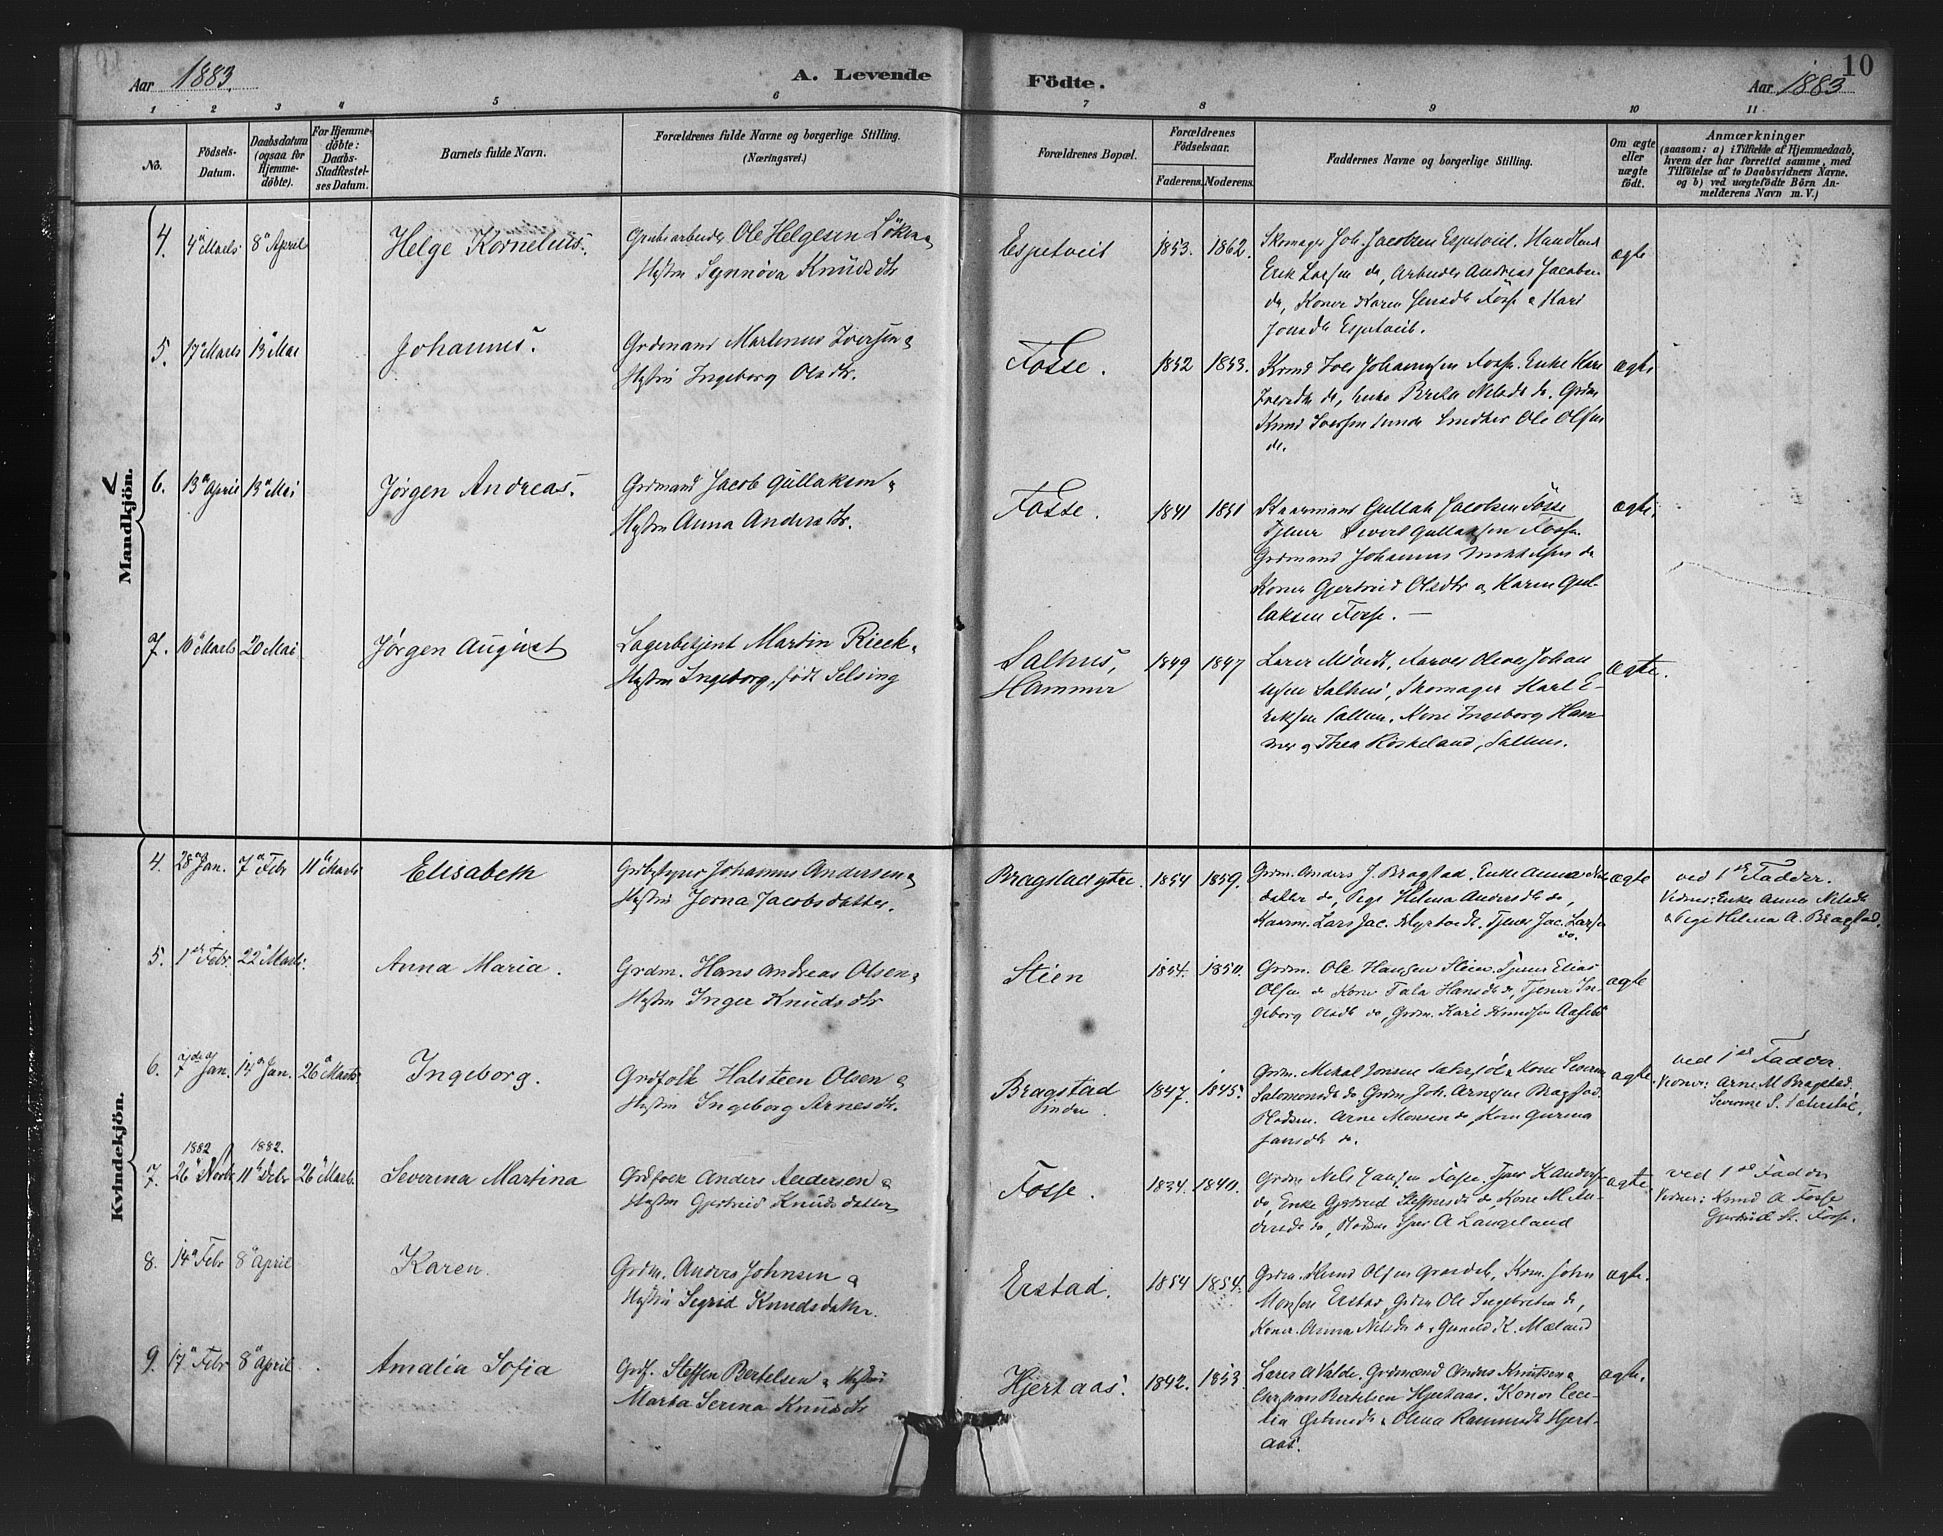 10
Aar 1883.
A. Levende
Födte.
Aar 1883
1 2 3 4 5 6 7 8 9 10 11
No.
Födsels-Datum.
Daabsdatum (ogsaa for Hjemme-döbte).
For Hjemme-döbte: Daabs-Stadfæstel-ses Datum.
Barnets fulde Navn.
Forældrenes fulde Navne og borgerlige Stilling.
(Næringsvei.)
Forældrenes Bopæl.
Forældrenes Födselsaar.
Faderens. Moderens.
Faddernes Navne og borgerlige Stilling.
Om ægte eller uægte födt.
Anmærkninger
(saasom: a) i Tilfælde af Hjemmedaab, hvem der har forrettet samme, med Tilföielse af to Daabsvidners Navne. og b) ved uægtefödte Börn An-melderens Navn m. V.)
Mandkjön.
4. 4de Marts 8de April
Helge Kornelius.
Ole Helgesen
Hustru Synnöva Knudsdtr
Espetveit
1853. 1862.
Skomager Joh. Jacobsen Espetveit.
Erik Larsen do, Arbeider Andreas Jacobsen
do, Koner Karen Jensdtr Fosse & Kari
Jonsdtr Espetveit.
ægte
5. 17de Marts 13de Mai
Johannes.
Grdmand Martinus Iversen &
Hustru Ingeborg Olsdtr.
Fosse.
1852 1853.
Johannesen Fosse. Enke Kari
Iversdtr do, Enke Brita Nilsdtr do. Grdm
Knud Iversen Ole Olsen
do.
ægte
6. 13de April 13de Mai
Jörgen Andreas.
Grdmand Jacob Gullaksen &
Hustru Anna Andersdtr.
Fosse.
1841 1851
Kaarmand Gullak Jacobsen Fosse
Tjener Sivert Gullaksen Fosse.
Grdmand Johannes Mikkelsen do
Koner Gjertrud Olsdtr & Karen Gul-
laksen Fosse. —
ægte.
7. 10de Marts 20 Mai
Jörgen August
Lagerbetjent Martin Rieck &
Hustru Ingeborg, född Selsing
Salhus,
Hammer
1849 1847
Johan
nesen Salhus, Skomager Karl E-
riksen Salhus. Kone Ingeborg Ham-
mer & Thea Röskeland, Salhus.
ægte.
Kvindekjön.
4. 28de Jan. 7de Febr 11te Marts
Elisabeth
Johannes Andersen &
Hustru Jorna Jacobsdatter.
Bragstad ytre.
1854 1859.
Grdm. Anders J. Bragstad. Enke Anna Nils
datter do, Pige Helena Andersdtr do,
Kaarm. Lars Jac. do. Tjener Jac. Larsen
do.
ægte
ved 1ste Fadder.
Vidner: Enke Anna Nilsdtr
& Pige Helena A. Bragstad.
5. 1ste Febr. 22de Marts.
Anna Maria.
Grdm. Hans Andreas Olsen &
Hustru Inger Knudsdtr
Stien
1854. 1850.
Grdm. Ole Hansen Stien. Tjener Elias
Olsen do Kone Hansdtr do, Tjener In-
geborg Olsdtr do, Grdm. Karl Knudsen
ægte
6. 7de Jan. 14de Jan. 26de Marts
Ingeborg.
Grdfolk Halsteen Olsen &
Hustru Ingeborg Arnesdtr.
Bragstad
indre.
1847. 1845.
Grdm. Mikal Jonsen Kone Severine
Salomonsdtr do. Grdm Joh. Arnesen Bragstad.
Arne Monsen do, Kone Gurina
Jansdtr do.
ægte.
ved 1ste Fadder
Vidner: Arne M Bragstad.
Severine S.
7. 1882 26de Novbr 1882. 11te Debr 26de Marts.
Severina Martina
Grdfolk Anders Andersen &
Hustru Gjertrud Knudsdatter
Fosse.
1834. 1840.
Grdm Nils Fosse,
do, Enke Gjertrud Steffensdtr do, Kone M An-
dersdtr do, A Langeland
ægte
ved 1ste Fadder
Vidner: Knud A Fosse
Gjertrud St. Fosse.
8. 14de Febr 8de April
Karen.
Grdm. Anders Johnsen &
Hustru Sigrid Knudsdatter.
Erstad.
1854 1854.
Grdm. Knud Olsen John
Monsen Erstad, Grdm Ole Ingebretsen do,
Koner. Anna Nilsdtr do & K. Mæland
ægte.
9. 17de Febr 8de April
Amalia Sofia
Grdf. Steffen Bertelsen & Hustru
Marta Serina Knudsdtr
Hjertaas.
1842. 1853.
Lærer A Valde, Grdmænd Anders Knutsen &
Christian Bertelsen Hjertaas. Koner Cece-
lia & Olina Rasmusdtr Hjert-
aas.
ægte.